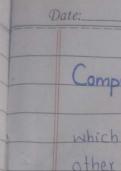 Date:
Comp
which
other